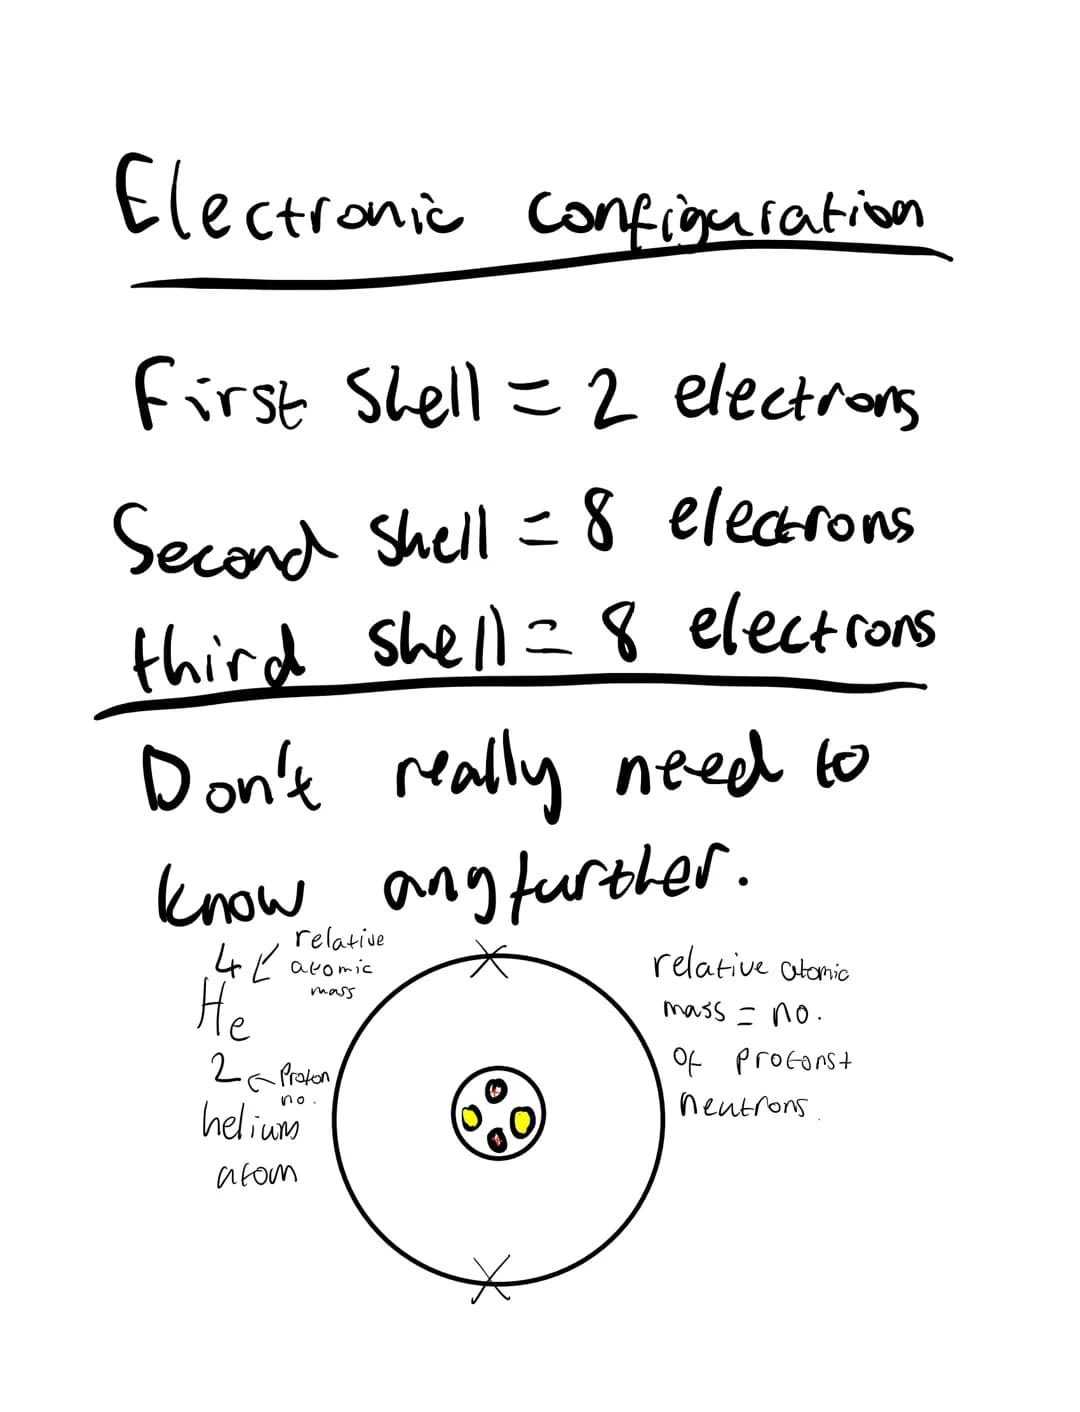 Electronic configuration
First shell = 2 electrons
Second shell = 8 electrons
third shell = 8 electrons
Don't really need to
know any further.
4 ↙ relative
atomic
mass
He
2 ← Proton
no.
helium
atom
relative atomic
mass = no.
of protons +
neutrons.